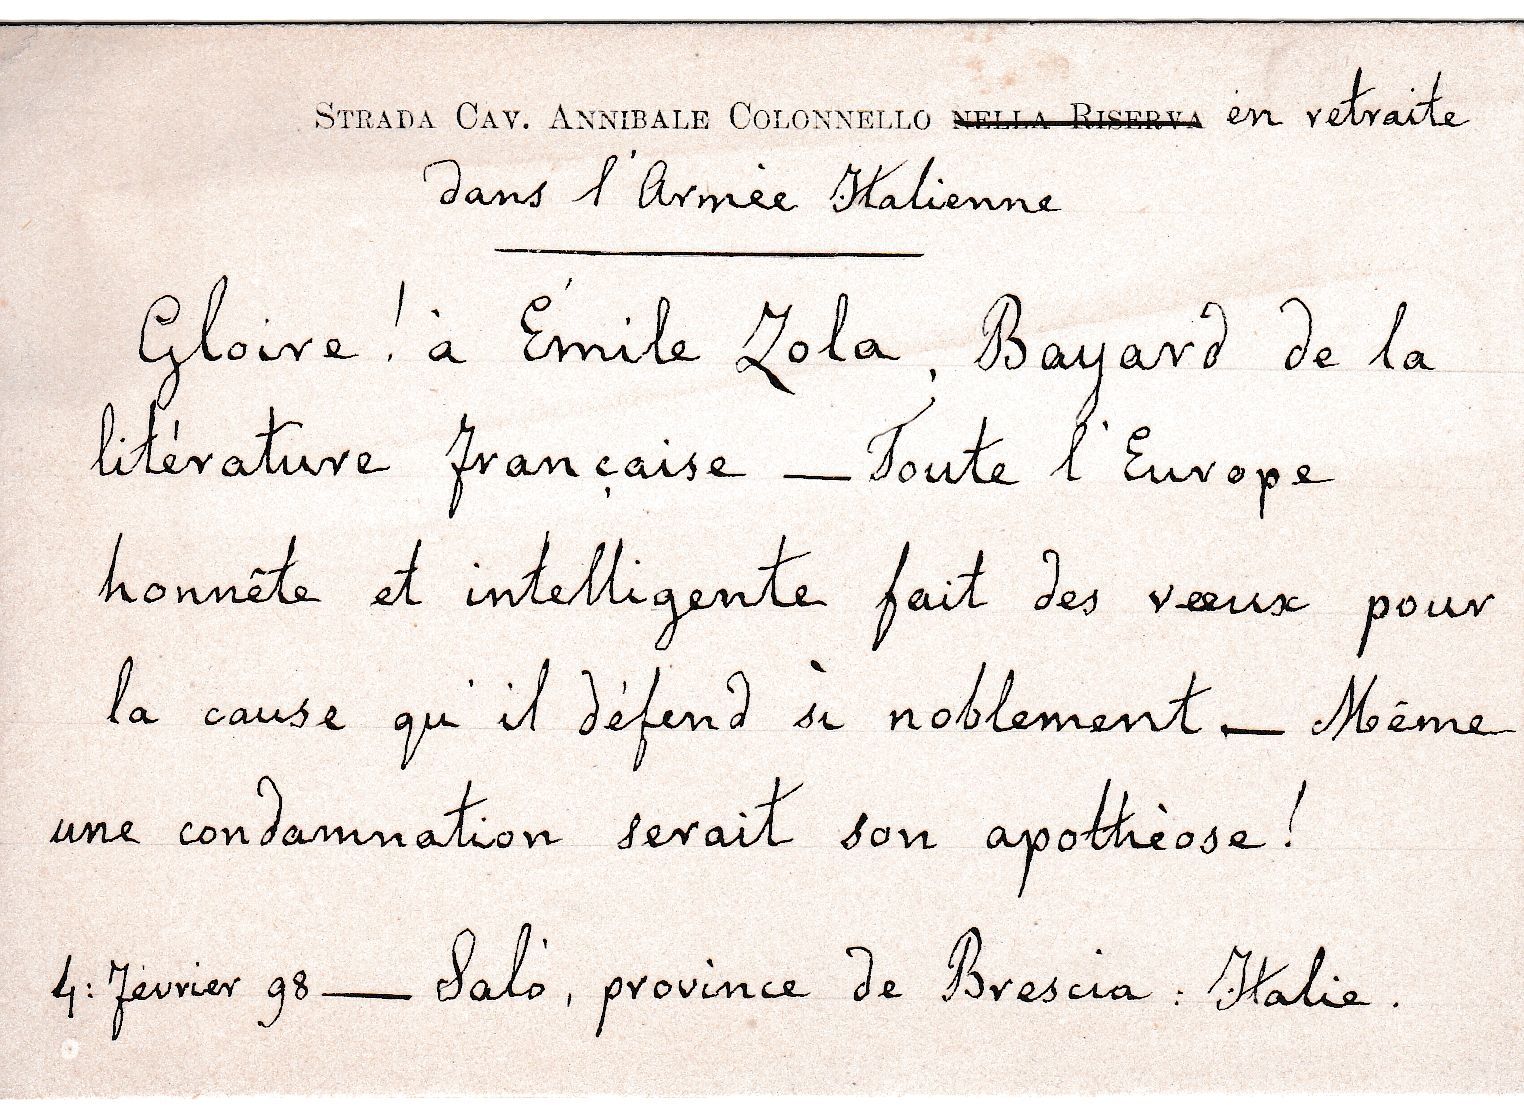 STRADA CAV. ANNIBALE COLONNELLO NELLA RISERVA en retraite
dans l'Armèe Italienne
Gloire! à Émile Zola, Bayard de la
litérature française — Toute l'Europe
honnête et intelligente fait des vœux pour
la cause qu'il défend si noblement. — Même
une condamnation serait son apothèose!
4: Février 98 — Salò, province de Brescia: Italie.